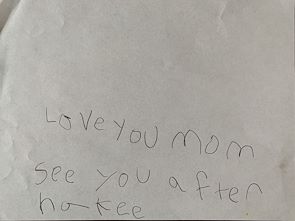 Love you mom
See you after
hokee